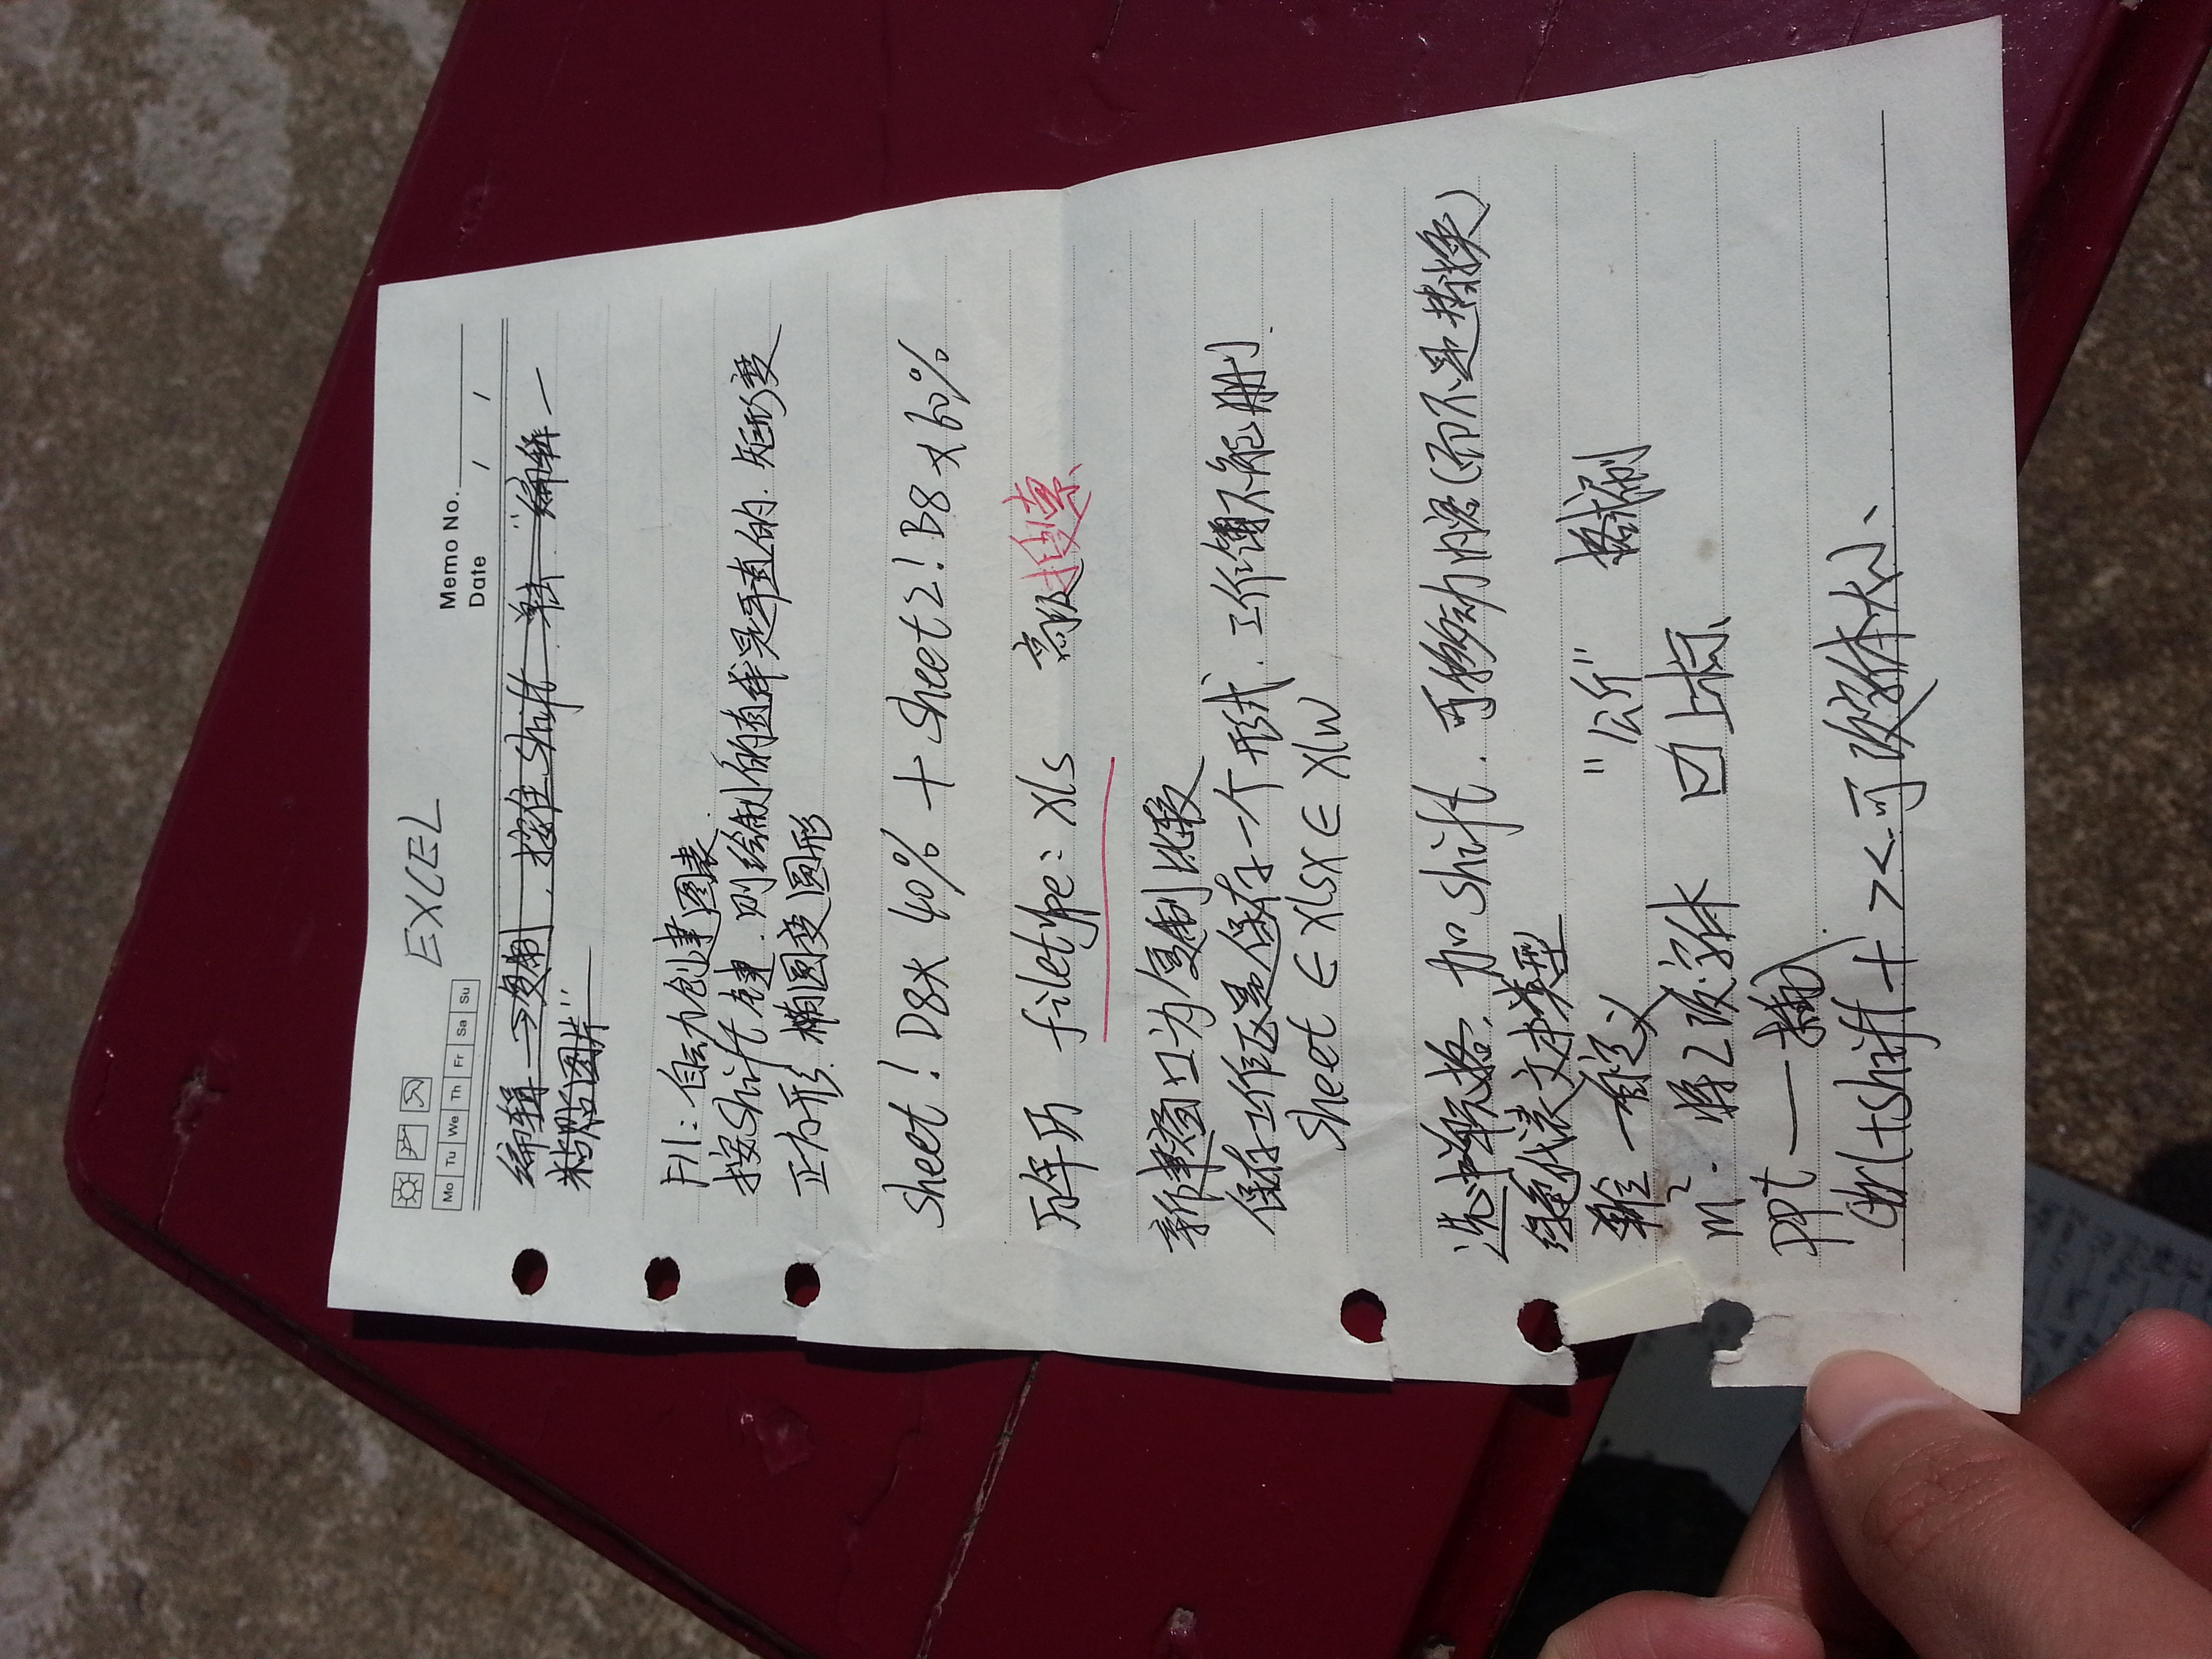 EXCEL
Mo Tu We Th Fr Sa Su
Memo No.
Date / /
编辑→复制.按住shift.单击."编辑—
粘贴图片"
F11:自动创建图表.
按shift键.则绘制的直线是平直的.矩形变
正方形.椭圆变圆形
sheet!D8* 40% + sheet2!B8*60%
万年历 filetype:xls 高级搜索
新建窗口为复制比较
保存工作区是保存一个形式.工作簿不能删.
sheet∈xlsx∈xlw
选中单元格.加shift.可移动内容(而不是替换)
绿色代表文本类型
单位—自定义 "公斤" 格式刷
m².将2改字体 ☑上标
PPt——插入.
Ctrl+shift+><可改字体大小